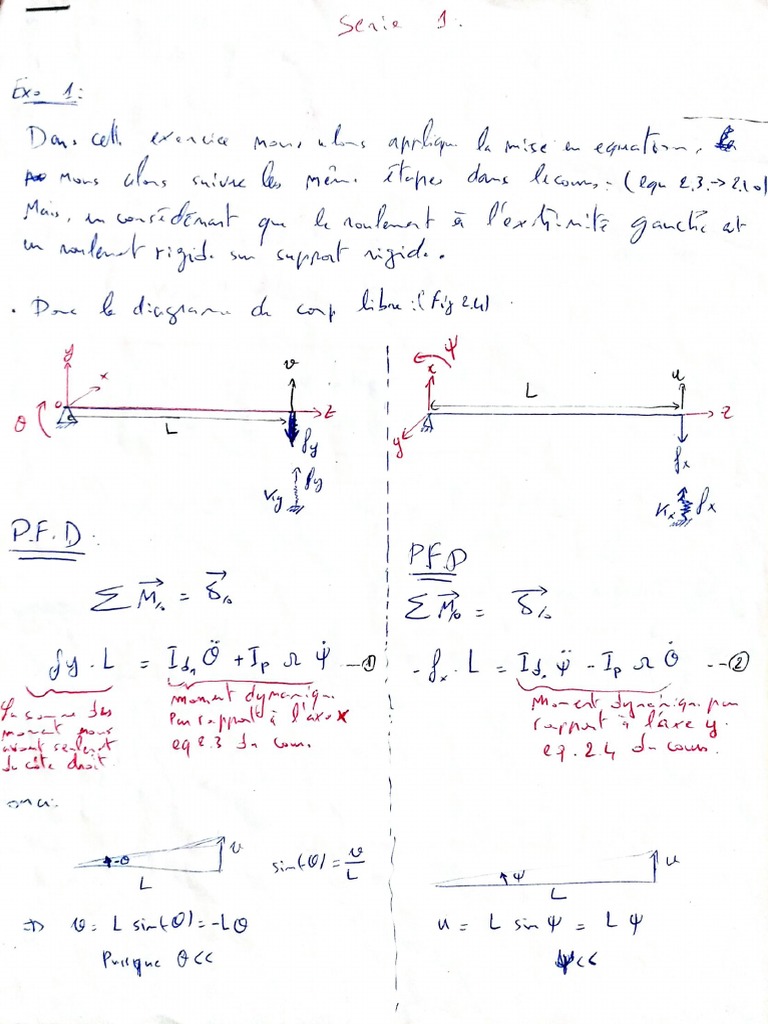 Serie 1.
Exo 1:
Dans cett exercice nous alons applique la mise en equation.
nous alons suivre les même étapes dans lecours: (equ 2.3 → 2.10)
Mais, en considérant que le roulement à l'extrimité gauche est
un roulement rigide sur support rigide.
. Donc le diagrame de corp libre: (Fig 2.4)
y
x
θ
o
L
v
z
fy
fy
Ky
ψ
x
L
u
z
y
fx
Kx
fx
P.F.D:
Σ M/o = δ/o
fy . L = Id₁ θ̈ + Ip Ω ψ̇ --①
la somme des
moment nous
avons seulement
du côté droit.
moment dynamique
Par rapport à l'axe x
eq 2.3 du cours.
onci:
-θ
v
L
sin(-θ) = v/L
⇒ v = L sin(-θ) = -Lθ
Puisque θ<<
PFD
Σ M/o = δ/o
- fx . L = Id₁ ψ̈ - Ip Ω θ̇ --②
Moment dynamique par
rapport à l'axe y.
eq. 2.4 du cours.
ψ
u
L
u = L sin ψ = L ψ
ψ<<